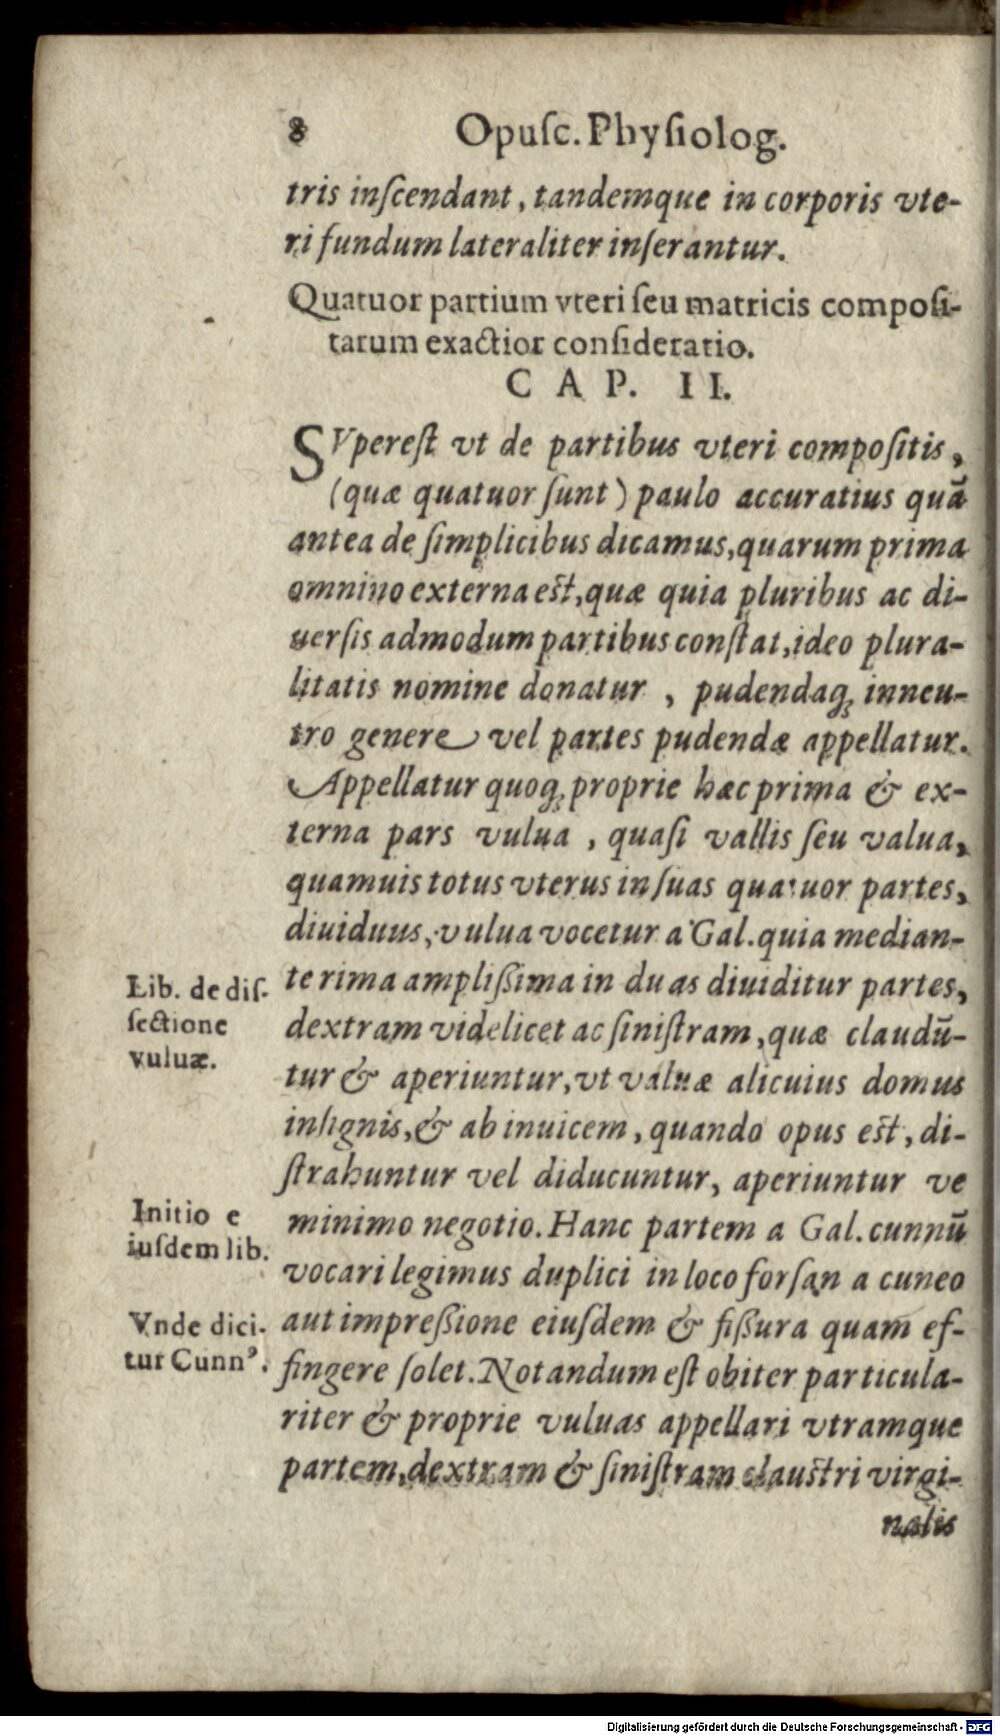 8 Opuſc. Phyſiolog.
tris inſcendant, tandemque in corporis vte-
ri fundum lateraliter inſerantur.
Quatuor partium vteri ſeu matricis compoſi-
tarum exactior conſideratio.
CAP. II.
SVpereſt vt de partibus vteri compoſitis,
(quæ quatuor ſunt) paulo accuratius quā
antea de ſimplicibus dicamus, quarum prima
omnino externa eſt, quæ quia pluribus ac di-
uerſis admodum partibus conſtat, ideo plura-
litatis nomine donatur, pudendaq; in neu-
tro genere vel partes pudendæ appellatur.
Appellatur quoq; proprie hæc prima & ex-
terna pars vulua, quaſi vallis ſeu valua,
quamuis totus vterus in ſuas quatuor partes,
diuiduus, vulua vocetur a Gal. quia median-
te rima ampliſſima in duas diuiditur partes,
dextram videlicet ac ſiniſtram, quæ claudū-
tur & aperiuntur, vt valuæ alicuius domus
inſignis, & ab inuicem, quando opus eſt, di-
ſtrahuntur vel diducuntur, aperiuntur ve
minimo negotio. Hanc partem a Gal. cunnū
vocari legimus duplici in loco forſan a cuneo
aut impreſſione eiuſdem & fiſſura quam ef-
fingere ſolet. Notandum eſt obiter particula-
riter & proprie vuluas appellari vtramque
partem, dextram & ſiniſtram clauſtri virgi-
nalis
Lib. de diſ-
ſectione
vuluæ.
Initio e
iuſdem lib.
Vnde dici-
tur Cunnꝰ.
Digitalisierung gefördert durch die Deutsche Forschungsgemeinschaft - DFG